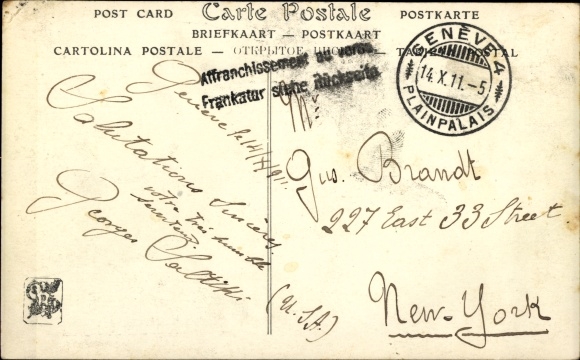 POST CARD Carte Postale POSTKARTE
BRIEFKAART — POSTKAART
CARTOLINA POSTALE — ОТКРЫТОЕ
Affranchissement au verso.
Frankatur siehe Rückseite
GENÈVE 4
14.X.11.-5
PLAINPALAIS
Genève le 14/X/911.
Salutations Sincères.
votre très humble
serviteur
Georges
Mr
Gus. Brandt
227 East 33 Street.
New-York
(U.S.A)